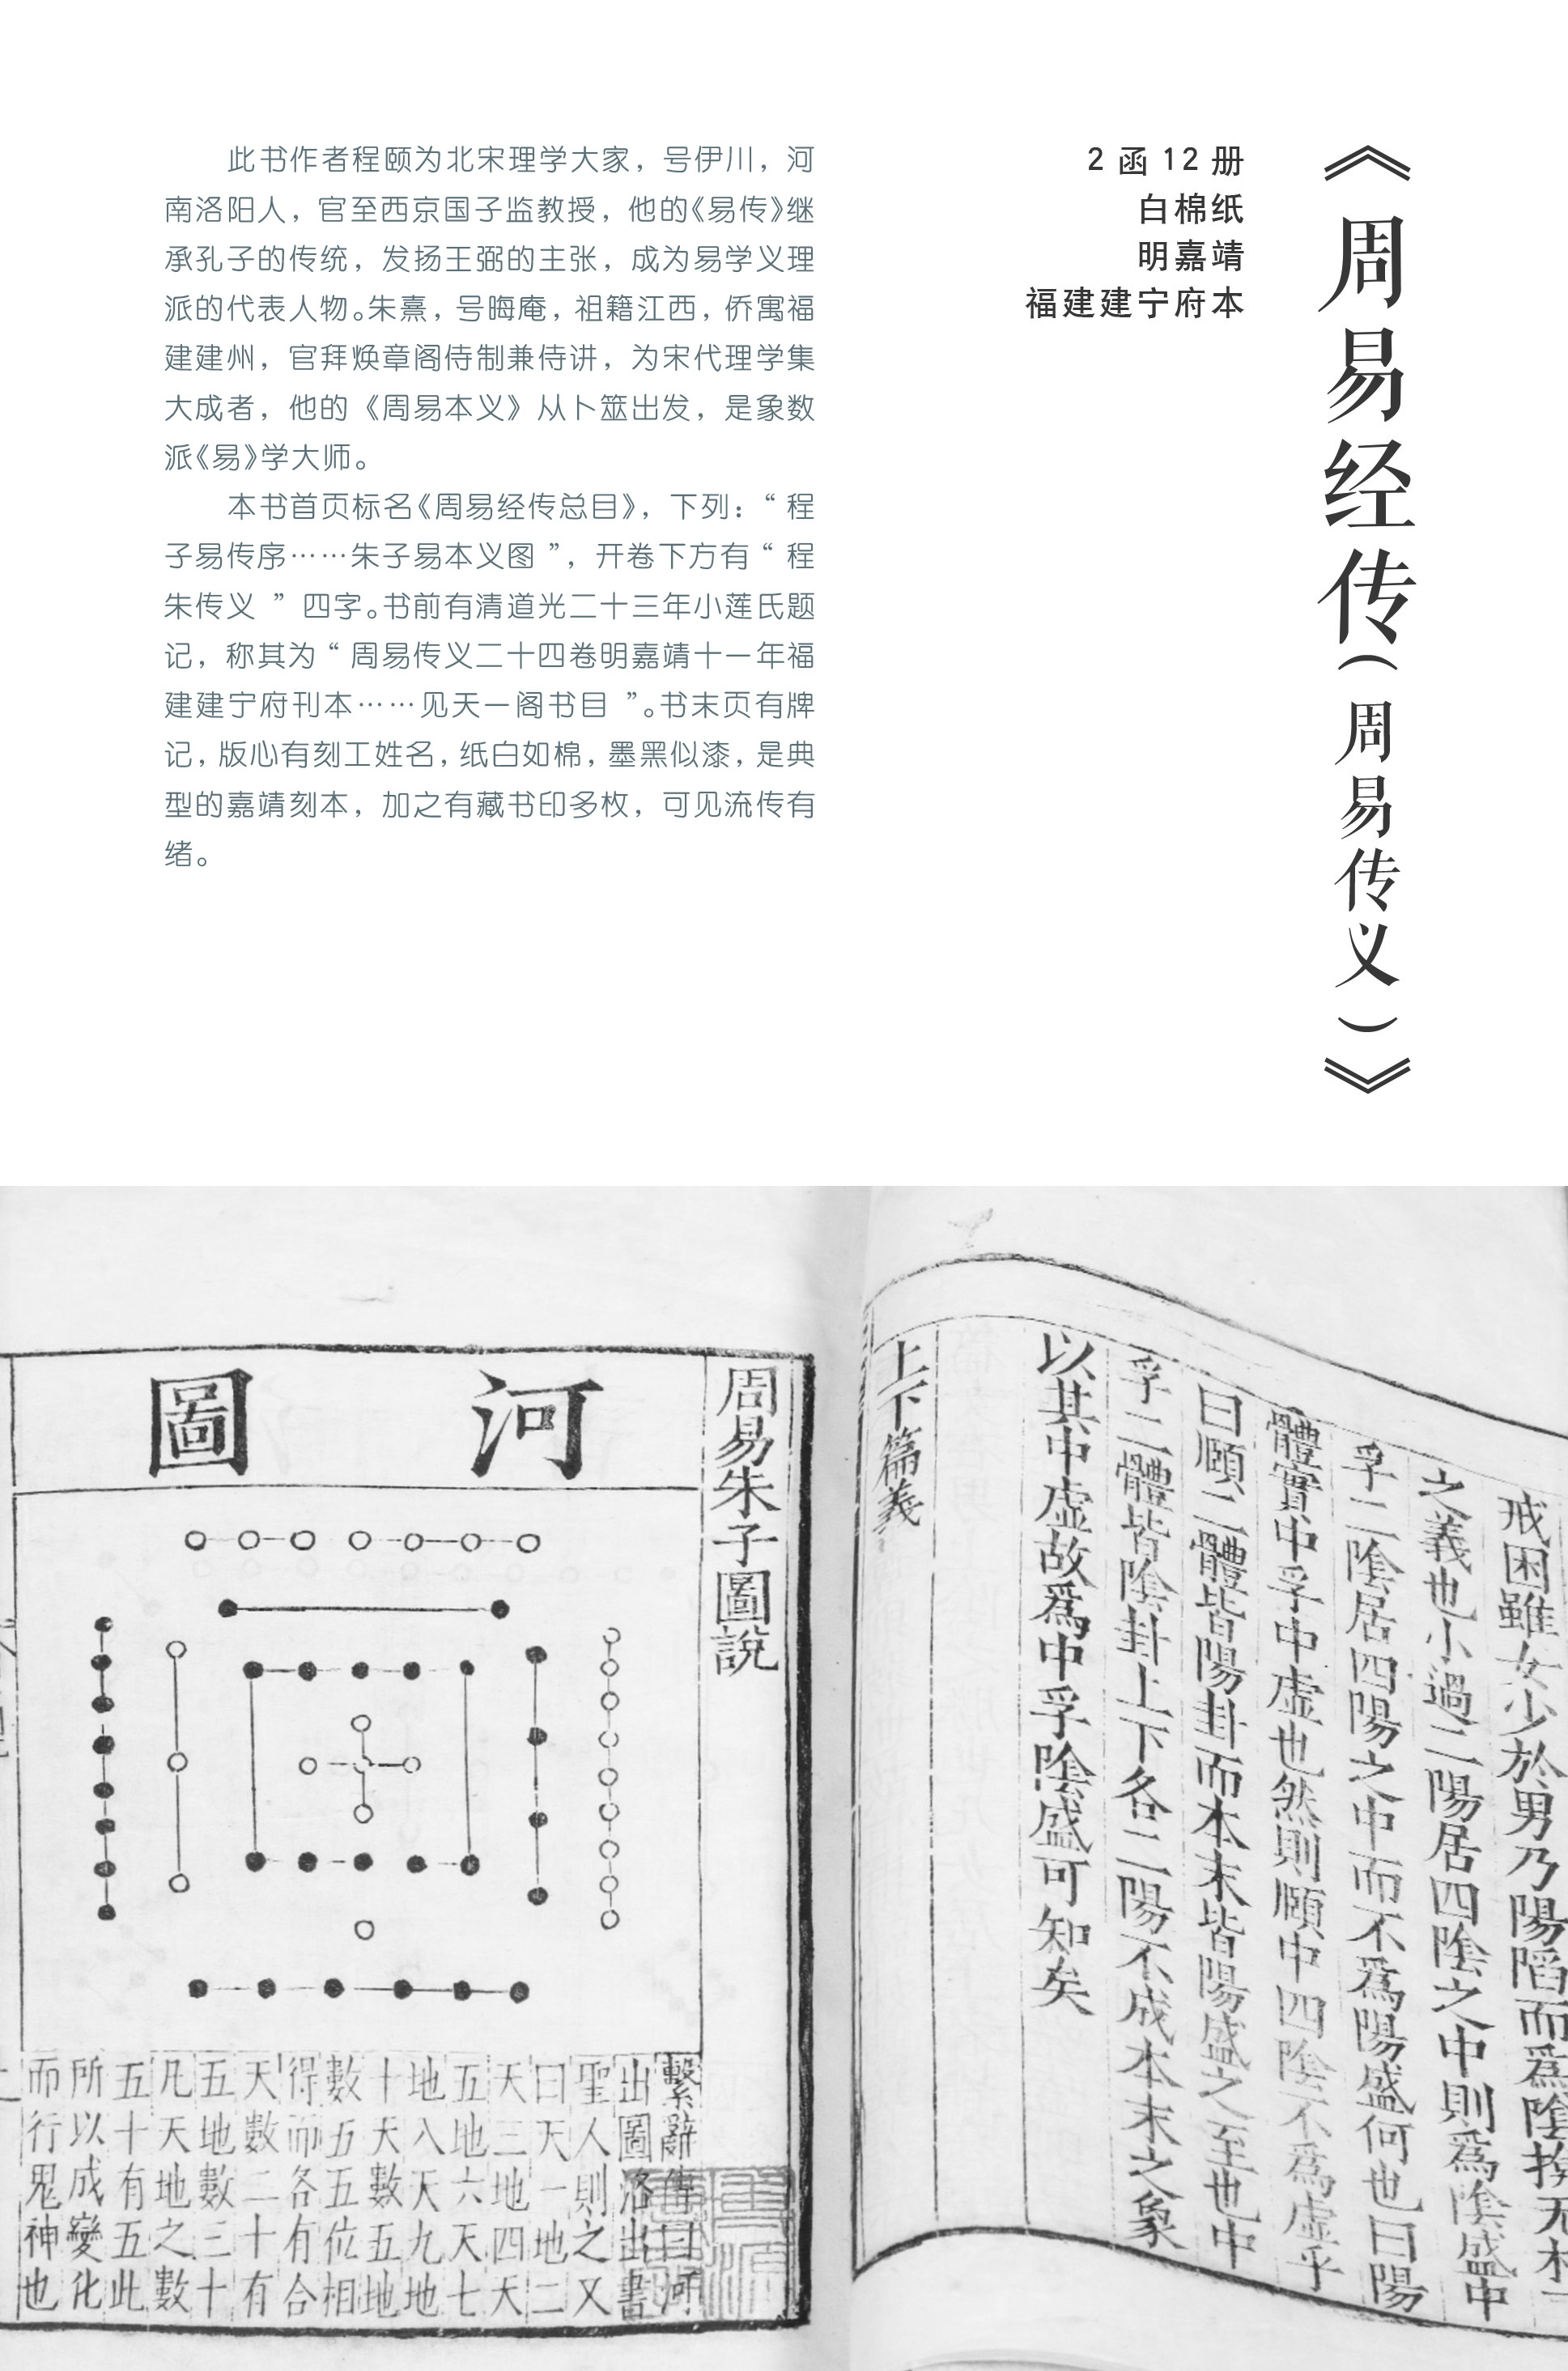 《周易经传(周易传义)》
2 函 12 册
白棉纸
明嘉靖
福建建宁府本
此书作者程颐为北宋理学大家，号伊川，河
南洛阳人，官至西京国子监教授，他的《易传》继
承孔子的传统，发扬王弼的主张，成为易学义理
派的代表人物。朱熹，号晦庵，祖籍江西，侨寓福
建建州，官拜焕章阁侍制兼侍讲，为宋代理学集
大成者，他的《周易本义》从卜筮出发，是象数
派《易》学大师。
本书首页标名《周易经传总目》，下列：“ 程
子易传序……朱子易本义图 ”，开卷下方有“ 程
朱传义 ” 四字。书前有清道光二十三年小莲氏题
记，称其为“ 周易传义二十四卷明嘉靖十一年福
建建宁府刊本……见天一阁书目 ”。书末页有牌
记，版心有刻工姓名，纸白如棉，墨黑似漆，是典
型的嘉靖刻本，加之有藏书印多枚，可见流传有
绪。
戒困雖女少於男乃陽陷而爲陰揜无相
之義也小過二陽居四陰之中則爲陰盛中
孚二陰居四陽之中而不爲陽盛何也曰陽
體實中孚中虛也然則頤中四陰不爲虛乎
曰頤二體皆陽卦而本末皆陽盛之至也中
孚二體皆陰卦上下各二陽不成本末之象
以其中虛故爲中孚陰盛可知矣
上下篇義
周易朱子圖說
河圖
繫辭傳曰河
出圖洛出書
聖人則之又
曰天一地二
天三地四天
五地六天七
地八天九地
十天數五地
數五五位相
得而各有合
天數二十有
五地數三十
凡天地之數
五十有五此
所以成變化
而行鬼神也